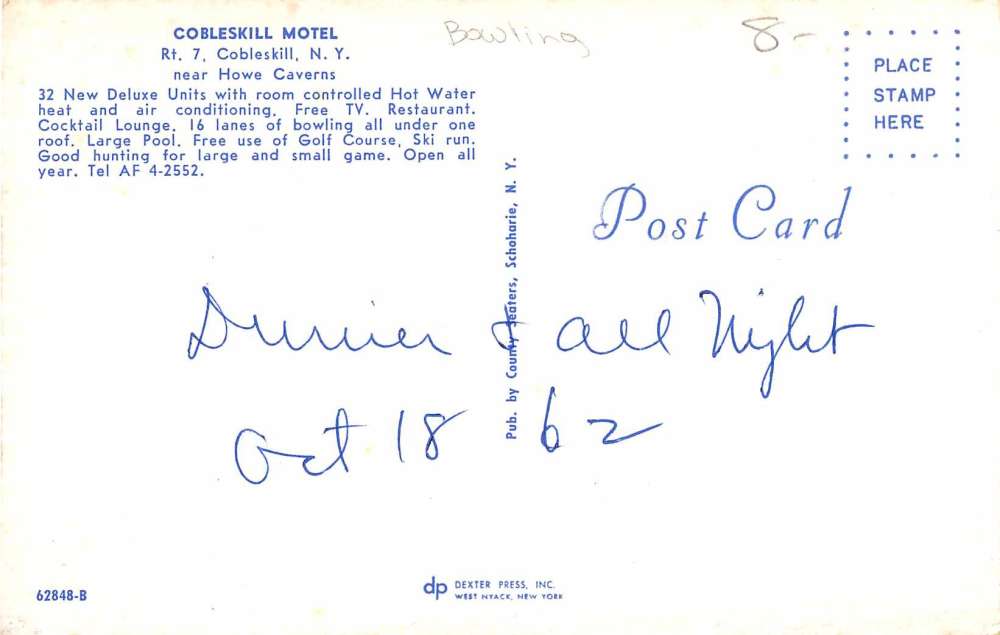 COBLESKILL MOTEL
Rt. 7, Cobleskill, N. Y.
near Howe Caverns
32 New Deluxe Units with room controlled Hot Water
heat and air conditioning. Free TV. Restaurant.
Cocktail Lounge. 16 lanes of bowling all under one
roof. Large Pool. Free use of Golf Course, Ski run.
Good hunting for large and small game. Open all
year. Tel AF 4-2552.
Bowling
8-
PLACE
STAMP
HERE
Post Card
Pub. by County Seaters, Schoharie, N. Y.
Dinner & all Night
Oct 18 62
62848-B
dp DEXTER PRESS, INC.
WEST NYACK, NEW YORK